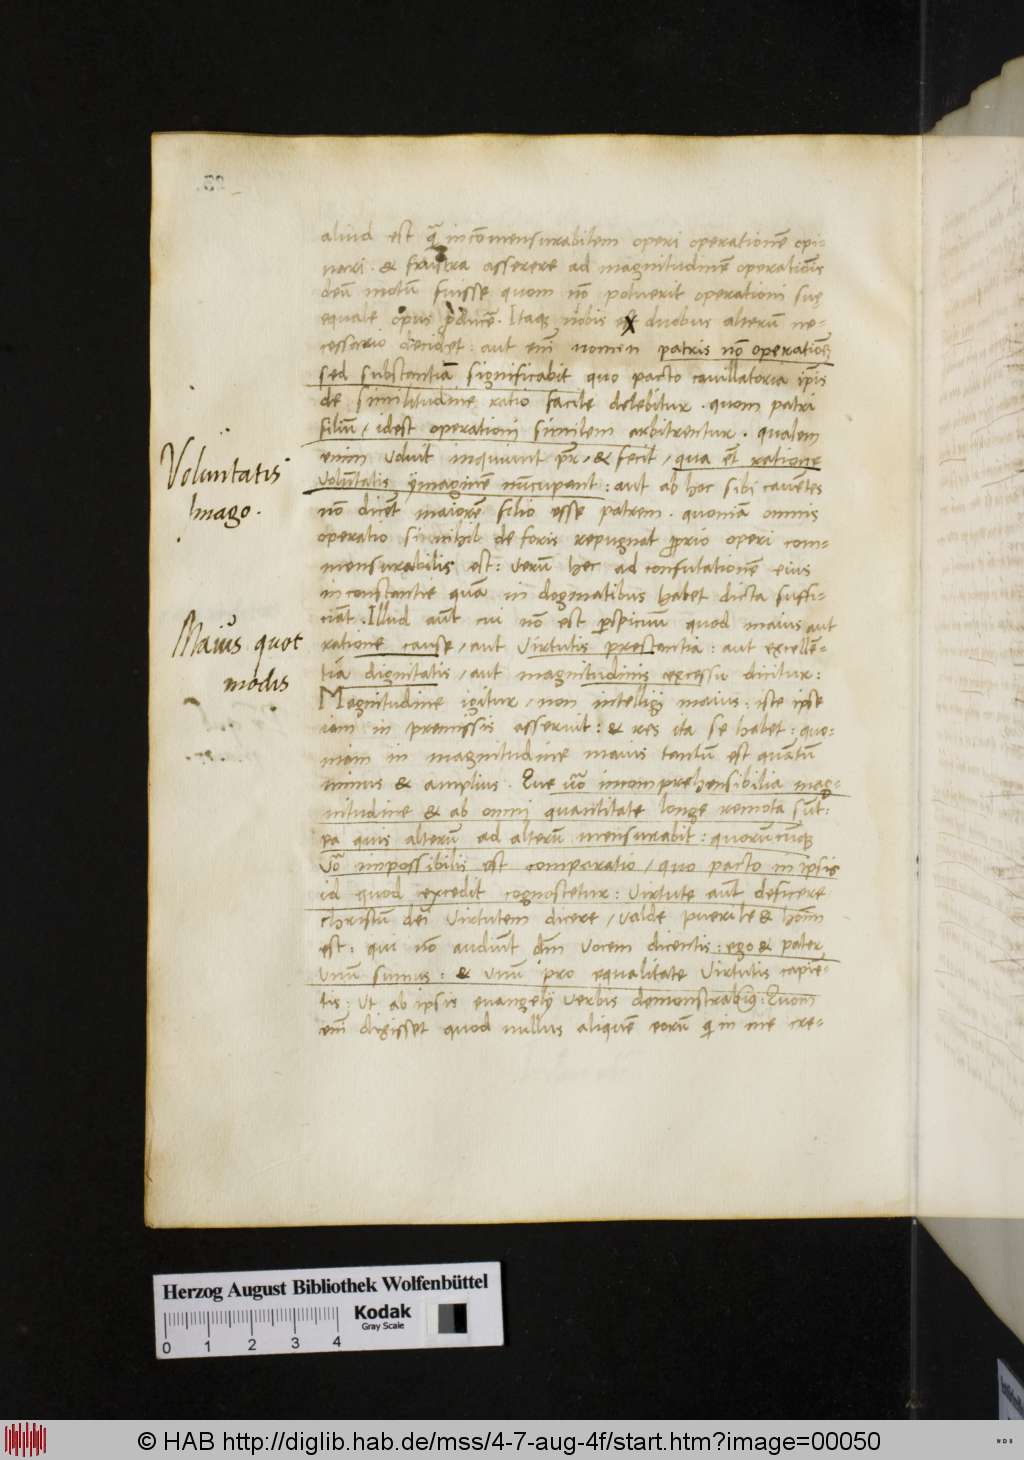 aliud est q̃ incõmensurabilem operi operationẽ opi-
nari . & frustra asserere ad magnitudinẽ operationis
deũ motũ fuisse quom nõ potuerit operationi suę
equale opus ꝓducẽ . Itaqꝫ nobis ex duobus alterũ ne-
cessario decidet : aut enĩ nomen patris nõ operationẽ
sed substantiã significabit quo pacto cavillatoria ip̃is
de similitudine ratio facile delebitur . quom patri
filiũ / idest operationi similem arbitrentur . qualem
enim voluit inquiunt pr̃ / & fecit / qua et̃ ratione
voluntatis ymaginẽ nũcupant : aut ab hoc sibi cavẽtes
nõ dicẽt maiorẽ filio esse patrem . quoniã omnis
operatio si nihil de foris repugnat proprio operi com-
mensurabilis est : verũ hec ad confutationẽ eius
inconstantie quã in dogmatibus habet dicta suffi-
ciãt . Illud aũt cui nõ est perspicuũ quod maius aut
ratione cause / aut virtutis prestantia : aut excellẽ-
tia dignitatis / aut magnitudinis excessu dicitur :
Magnitudine igitur / non intelligi maius : iste ipse
iam in premissis asseruit : & res ita se habet : quo-
niam in magnitudine maius tantũ est quãtũ
minus & amplius . Que vo᷃ incomprehensibilia mag-
nitudine & ab omni quantitate longe remota sũt :
ea quis alterũ ad alterũ mensurabit : quorũcũqꝫ
vo᷃ impossibilis est comparatio / quo pacto in ipsis
id quod excedit cognoscetur : virtute aũt deficere
christũ dei virtutem dicere / valde puerile & hoĩm
est : qui nõ audiũt dñi vocem dicentis : ego & pater
unũ sumus : & unũ pro equalitate virtutis capiẽ-
tis : ut ab ipsis evangelij verbis demonstrabiť : Quom
enĩ dixisset quod nullus aliquẽ eorũ q̃ in me cre-
Voluntatis
Imago .
Maius quot
modis
Herzog August Bibliothek Wolfenbüttel
Kodak
Gray Scale
0 1 2 3 4
© HAB http://diglib.hab.de/mss/4-7-aug-4f/start.htm?image=00050